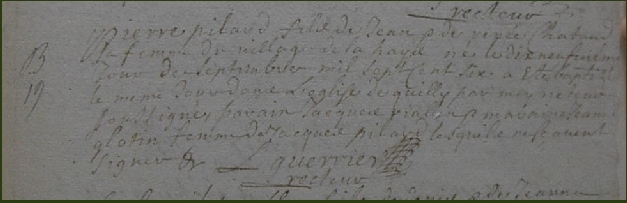 recteur
Pierre pilard fils de Jean p de renée Chabaud
sa femme du village de la haye né le dixneufieme
B jour de septembre mil sept cent six a Esté baptisé
19 le meme jour dans L'eglise de quilly par moy recteur
soussigné parain Jacques pialan maraine Jeanne
glotin femme de Jacques pilard lesquels ne scavent
signer &
L guerrier
recteur
fils de p de Jeanne